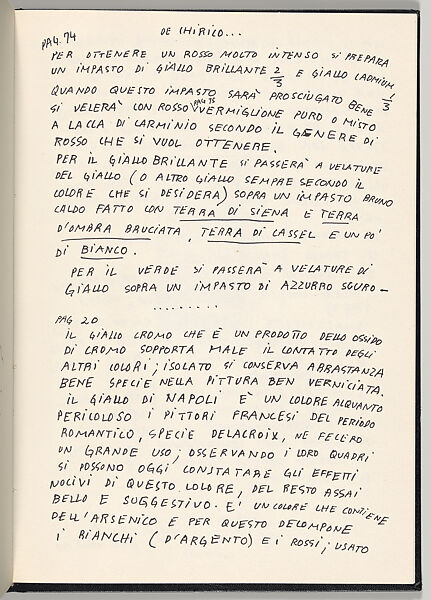 PAG. 74
DE CHIRICO...
PER OTTENERE UN ROSSO MOLTO INTENSO SI PREPARA
UN IMPASTO DI GIALLO BRILLANTE 2/3 E GIALLO CADMIUM 1/3
QUANDO QUESTO IMPASTO SARÀ PROSCIUGATO BENE
SI VELERÀ CON ROSSO PAG 75 VERMIGLIONE PURO O MISTO
A LACCA DI CARMINIO SECONDO IL GENERE DI
ROSSO CHE SI VUOL OTTENERE.
PER IL GIALLO BRILLANTE SI PASSERÀ A VELATURE
DEL GIALLO (O ALTRO GIALLO SEMPRE SECONDO IL
COLORE CHE SI DESIDERA) SOPRA UN IMPASTO BRUNO
CALDO FATTO CON TERRA DI SIENA E TERRA
D'OMBRA BRUCIATA, TERRA DI CASSEL E UN PO'
DI BIANCO.
PER IL VERDE SI PASSERÀ A VELATURE DI
GIALLO SOPRA UN IMPASTO DI AZZURRO SCURO -
.........
PAG 20
IL GIALLO CROMO CHE È UN PRODOTTO DELLO OSSIDO
DI CROMO SOPPORTA MALE IL CONTATTO DEGLI
ALTRI COLORI; ISOLATO SI CONSERVA ABBASTANZA
BENE SPECIE NELLA PITTURA BEN VERNICIATA.
IL GIALLO DI NAPOLI E' UN COLORE ALQUANTO
PERICOLOSO I PITTORI FRANCESI DEL PERIODO
ROMANTICO, SPECIE DELACROIX, NE FECERO
UN GRANDE USO; OSSERVANDO I LORO QUADRI
SI POSSONO OGGI CONSTATARE GLI EFFETTI
NOCIVI DI QUESTO COLORE, DEL RESTO ASSAI
BELLO E SUGGESTIVO. E' UN COLORE CHE CONTIENE
DELL'ARSENICO E PER QUESTO DECOMPONE
I BIANCHI (D'ARGENTO) E I ROSSI; USATO